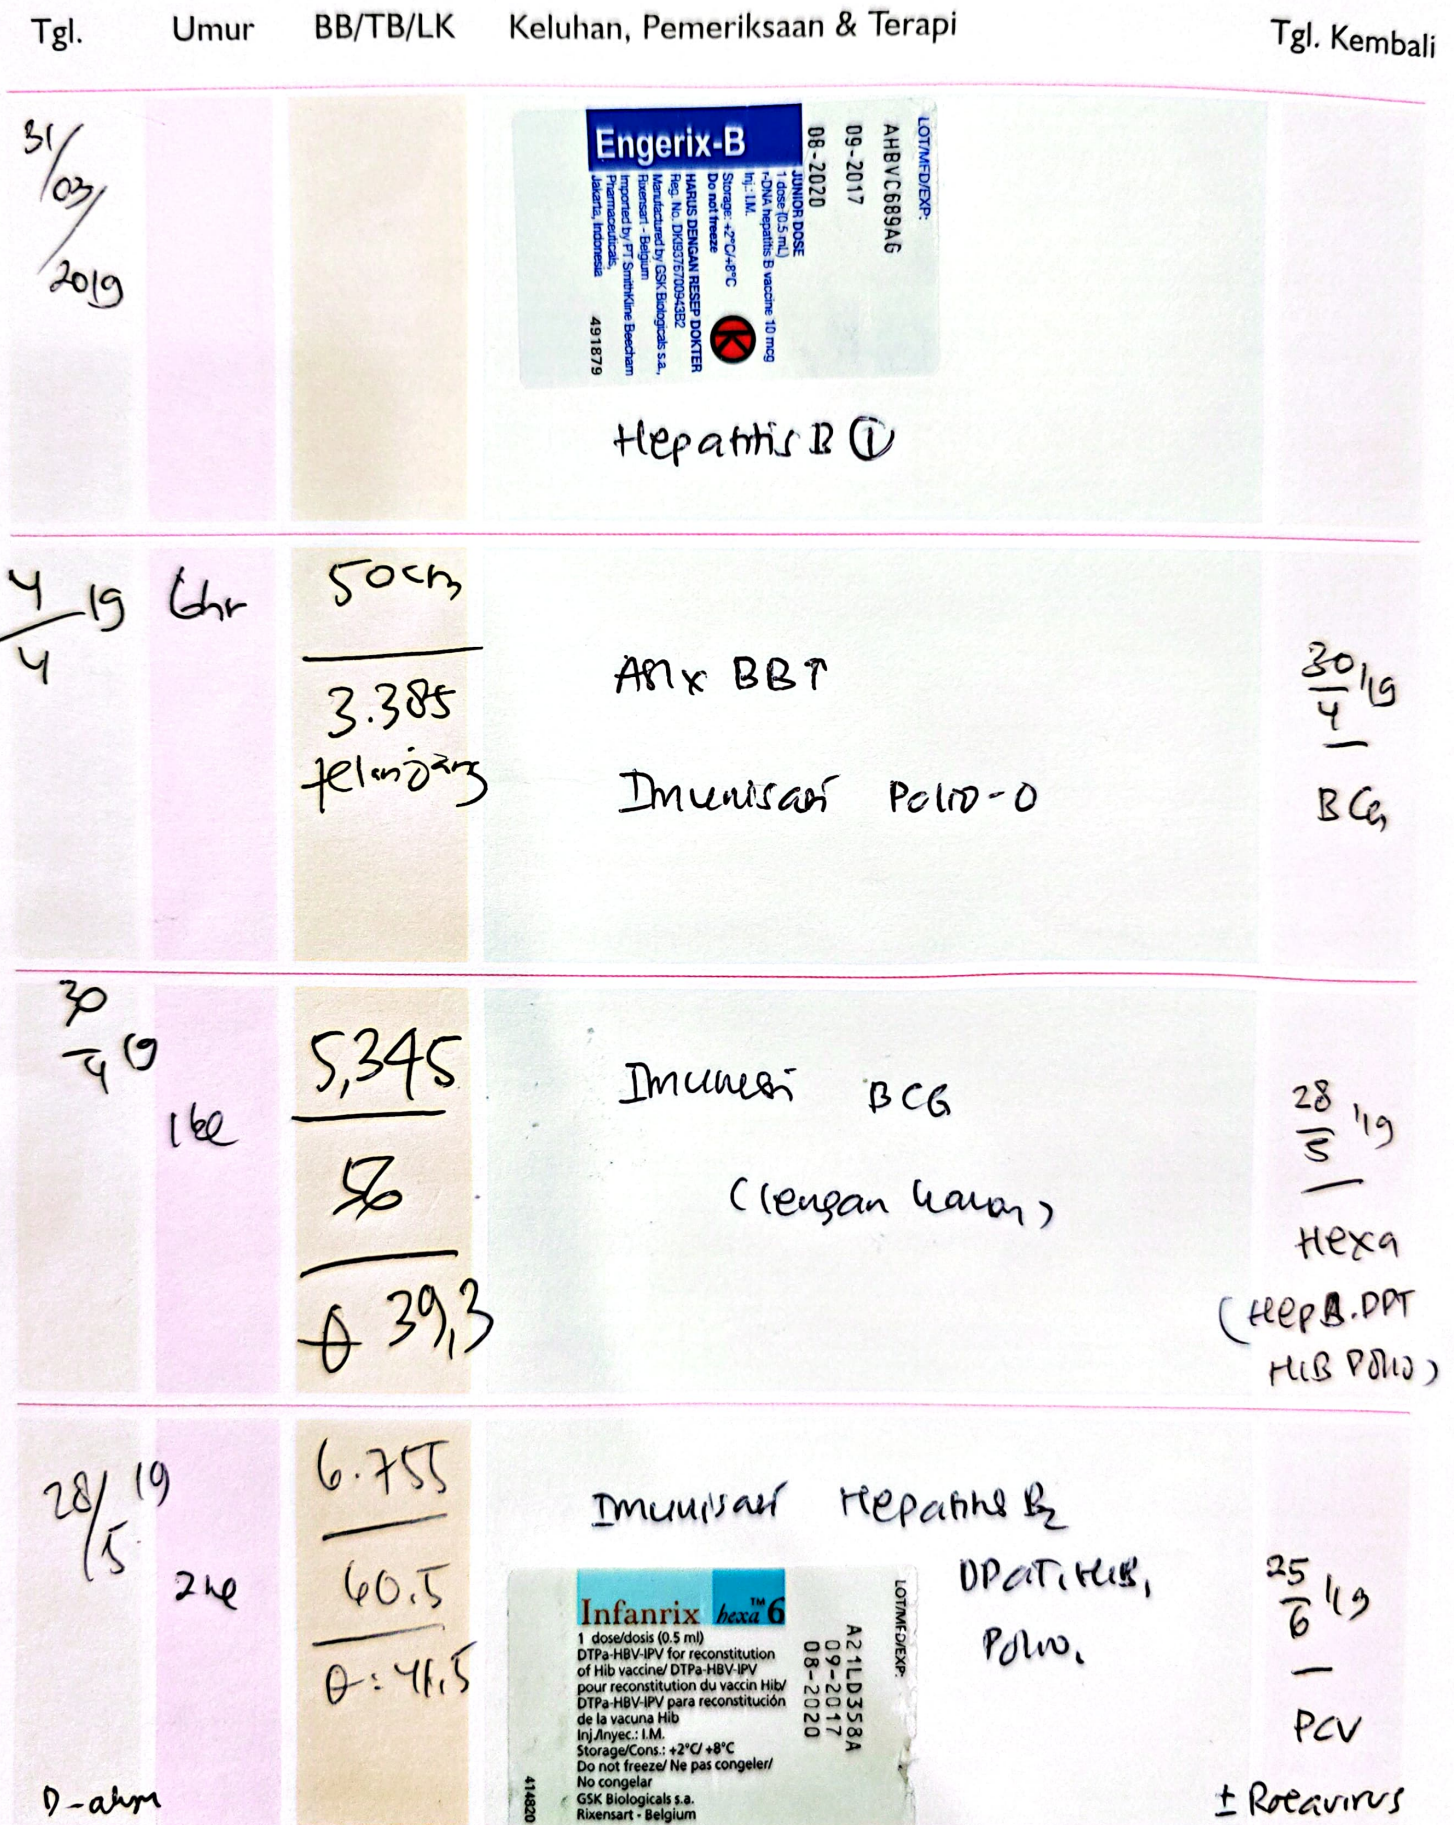 Tgl. Umur BB/TB/LK Keluhan, Pemeriksaan & Terapi Tgl. Kembali
31/03/2019
Engerix-B
JUNIOR DOSE
1 dose (0.5 mL)
r-DNA hepatitis B vaccine 10 mcg
Inj.: I.M.
Storage: +2°C/+8°C
Do not freeze
HARUS DENGAN RESEP DOKTER
Reg. No. DKI9376700943B2
Manufactured by GSK Biologicals s.a.,
Rixensart - Belgium
Imported by PT SmithKline Beecham
Pharmaceuticals,
Jakarta, Indonesia
491879
K
LOT/MFD/EXP:
AHBVC689AG
09-2017
08-2020
Hepatitis B ①
4/4 19
6hr
50cm
3.385
telanjang
ASIx BB↑
Imunisasi Polio-0
30/4 '19
BCG
30/4 19
1bl
5,345
56
39,3
BCG
(lengan kanan)
28/5 '19
Hexa
(Hep B.DPT
HIB Polio)
28/5 19
6.755
60.5
: 41,5
Imunisasi Hepatitis B2
DPaT, HIB,
Polio.
Infanrix hexa™ 6
1 dose/dosis (0.5 ml)
DTPa-HBV-IPV for reconstitution
of Hib vaccine/ DTPa-HBV-IPV
pour reconstitution du vaccin Hib/
DTPa-HBV-IPV para reconstitución
de la vacuna Hib
Inj./Inyec.: I.M.
Storage/Cons.: +2°C/ +8°C
Do not freeze/ Ne pas congeler/
No congelar
GSK Biologicals s.a.
Rixensart - Belgium
414820
LOT/MFD/EXP:
A21LD358A
09-2017
08-2020
25/6 '19
PCV
± Rotavirus